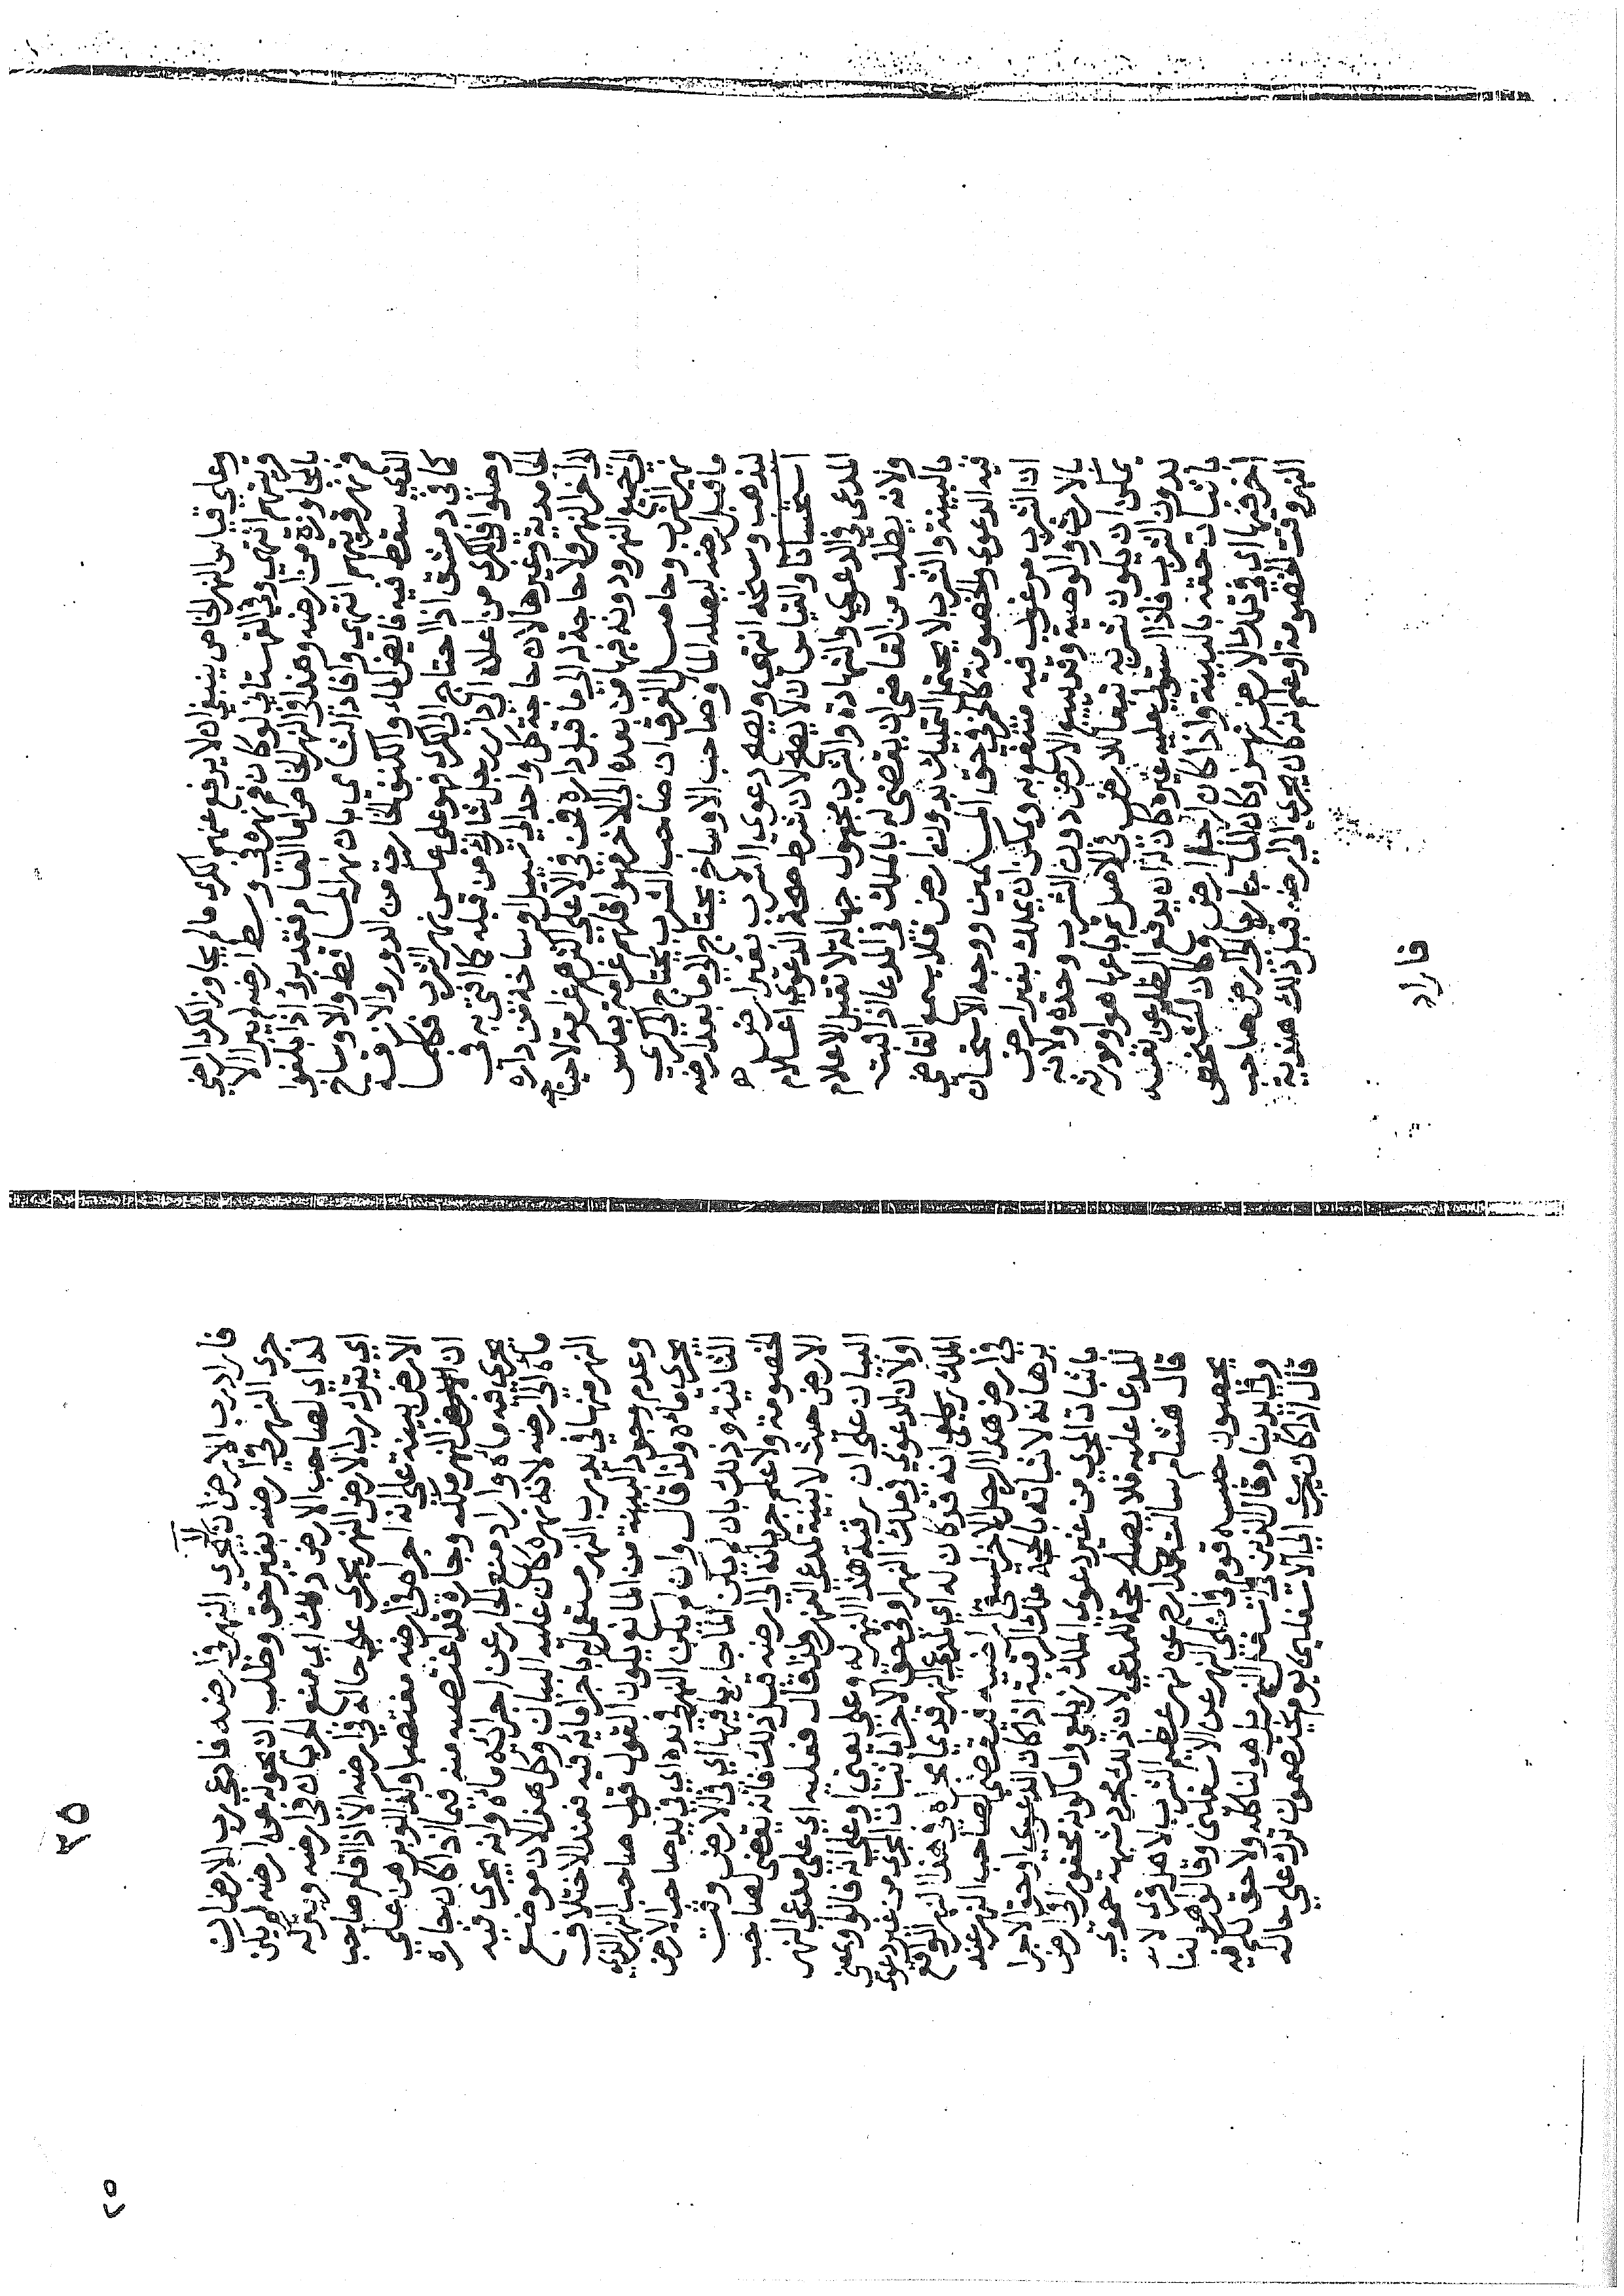 وعلي قياس النهر الخاص ينبغي ان لا يرفع عنهم الكري ما لم يجاوز الكري ارض
رفيقهم انتهي وفي القهستاني لو كان فم نهره في وسط ارضه يبرأ
بالمجاوزة من ارضه وهذا في النهر الخاص اما العام فقد برؤا اذا بلغوا
فم نهر رفيقهم انتهي وافاد الشامي بان نهر المساقط والاوساخ
الذي يسقط فيه فايض الماء والكنف الخارجة من الدور والازقة
كما في دمشق اذا احتاج الي الكري فهو علي عكس نهر الشرب فكلما
وصلوا في الكري من اعلاه الي دار رجل شارك من قبله كما افتي به في
الحامدية وغيرها لان حاجة كل واحد الي تسييل اوساخه من داره
الي اخر النهر ولا حاجة له الي ما قبل داره فمن في الاعلي اكثرهم غرامة لاحتياجه
الي جميع النهر ودونه فيها من بعده الي الاخر فهو اقلهم غرامة بعكس
نهر الشرب وحاصل الفرق ان صاحب الشرب يحتاج الي كري
ما قبل ارضه ليصل الماء وصاحب الاوساخ يحتاج الي ما بعد ارضه
ليذهب وسخه انتهي ويصح دعوي الشرب بغير ارض
استحسانا والقياس ان لا يصح لان شرط صحة الدعوي اعلام
المدعي في الدعوي والشهادة والشرب مجهول جهالة لا تقبل الاعلام
ولانه يطلب من القاضي ان يقضي له بالملك في المدعا اذا ثبت
بالبينة والشرب لا يحتمل التمليك بدون ارض فلا يسمع القاضي
فيه الدعوي والخصومة كالخمر في حق المسلمين ووجه الاستحسان
ان الشرب مرغوب فيه منتفع به ويمكن ان يملك بغير ارض
بالارث والوصية وقد يبيع الارض دون الشرب وحده ولانه
يمكن ان يكون شربه تبعا للارض في الاصل ثم باعها هو او مورثه
بدون الشرب فاذا استولي عليه غيره كان له ان يدفع الظلم عن نفسه
باثبات حقه بالبينة واذا كان لرجل ارض وكان لشخص
اخر فيها اي في تلك الارض نهر وكان الماء جاريا الي ارض صاحب
النهر وقت الخصومة او علم انه كان يجري الي ارضه قبل ذلك هندية
فاراد
٣٥
فاراد رب الارض ان لا يجري النهر في ارضه فادعي رب الارض ان
جري النهر في ارضه بغير حق وطلب ان يحوله عن ارضه لم يكن
له اي لصاحب الارض ذلك اي منع الجريان في ارضه ويتركه
اي يترك رب الارض النهر يجري علي حاله في ارضه الا اذا اقام صاحب
الارض بينة علي انه اجراه في ارضه مغتصبا وكذا لو برهن علي
ان النهر ملكه وجاره قد غتصبه منه فيما اذا كان بجاره
يجري فيه ماءه واراد منع الجار عن اجرائه ماءه وانه يجري فيه
ماءه الي ارضه لانه نهره كان عليه البيان وكل هذا لان موضع
النهر منها في يد رب النهر مستعمل له باجرائه فيه فعند الاختلاف
وعدم وجود البينة من المانع يكون القول قول صاحب النهر الذي
يجري ماءه ولذا قال وان لم يكن النهر في يده اي في يد صاحب الارض
الثانية وذلك بان لم يكن الماء جاريا فيها اي في الارض وقت
الخصومة ولا علم جريانه الي ارضه قبل ذلك فانه يقضي لصاحب
الارض حيث لا بينة لمدعي النهر ولذا قال فعليه اي علي مدعي النهر
البيان علي ان رقبة هذا النهر له وعلي يعني او علي انه قالوا ويعني
اولا ان الدعوي في ملك النهر او في حق الاجرا باثبات المجري من غير دعوي
الملك زيلعي انه قد كان له اي لمدعي النهر قديما مجراه في هذا النهر الواقع
في ارض هذا الرجل الاخر ليسقي اراضيه فيقضي لصاحب النهر عند
برهانه لاثباته بالحجة ملك الرقبة اذا كان الدعوي او حق الاجرا
باثبات المجري من غير دعوي الملك زيلعي واما كونه محفورا في ارض
المدعا عليه فلا يصلح حجة للمدعي لان ذلك مجرد شبهة حموي
قال هشام سالت محمدا رح عن نهر عظيم الشرب لاهل قري لا
يحصون حبسه قوم في اعلي النهر عن الاسفلين وقالوا هو لنا
وفي ايدينا وقال الذين في اسفل النهر بل هو لنا كله ولا حق لكم فيه
قال اذا كان يجري الي الاسفلين يوم يختصمون ترك علي حاله
٢٥